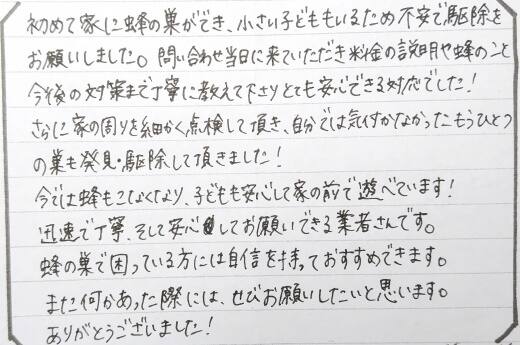 初めて家に蜂の巣ができ、小さい子どももいるため不安で駆除を
お願いしました。問い合わせ当日に来ていただき料金の説明や蜂のこと
今後の対策まで丁寧に教えて下さりとても安心できる対応でした!
さらに家の周りを細かく点検して頂き、自分では気付かなかったもうひとつ
の巣も発見・駆除して頂きました!
今では蜂もこなくなり、子どもも安心して家の前で遊べています!
迅速で丁寧、そして安心してお願いできる業者さんです。
蜂の巣で困っている方には自信を持っておすすめできます。
また何かあった際には、ぜひお願いしたいと思います。
ありがとうございました!